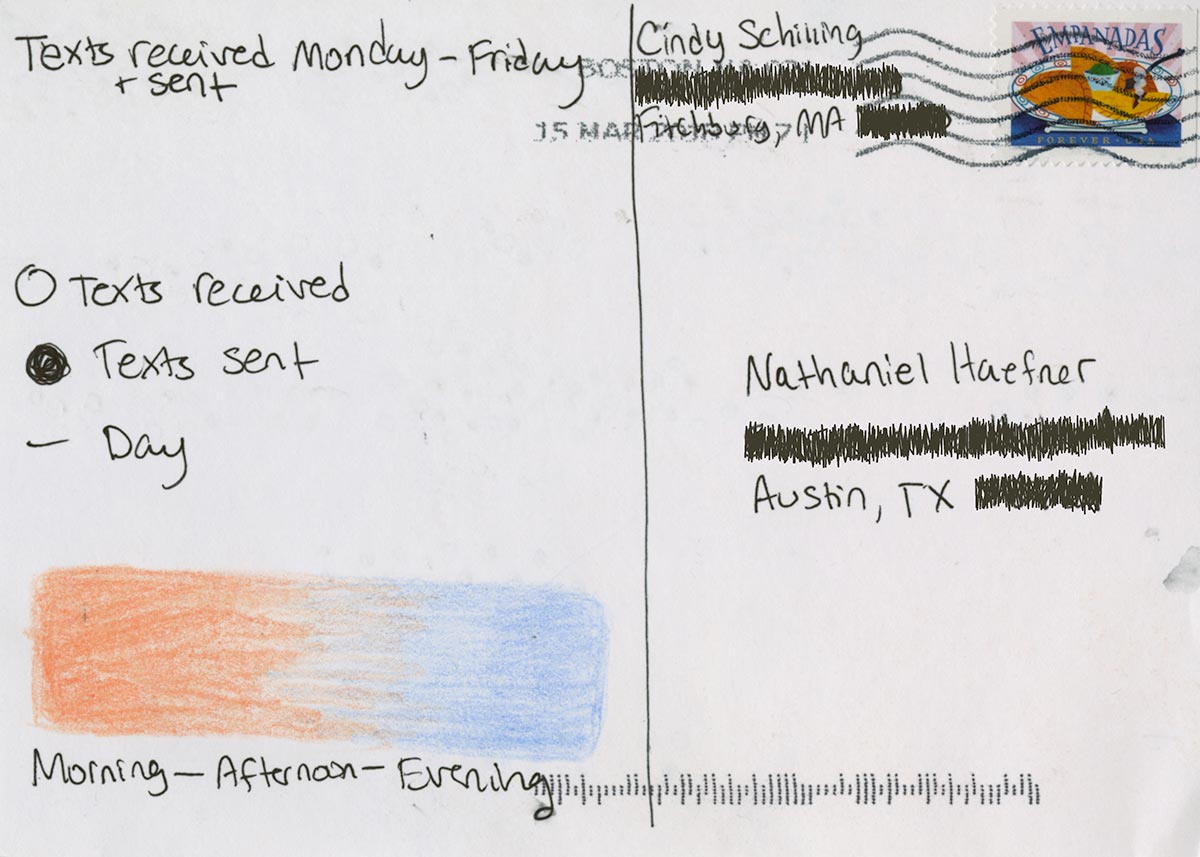 Texts received Monday - Friday
+ sent
O Texts received
● Texts sent
— Day
Morning — Afternoon — Evening
Cindy Schilling
Fitchburg, MA
BOSTON MA
15 MAR
EMPANADAS
FOREVER · USA
Nathaniel Haefner
Austin, TX